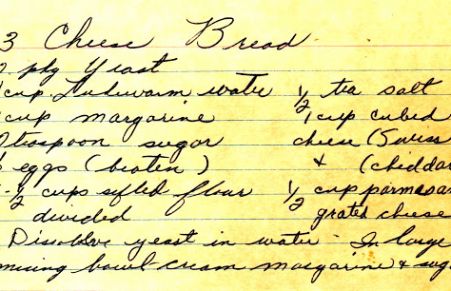 3 Cheese Bread
pkg yeast
cup Lukewarm water ½ tea salt
cup margarine 1 cup cubed
teaspoon sugar cheese (Swiss
eggs (beaten) & (cheddar
-½ cups sifted flour ½ cup parmesan
divided grated cheese
Dissolve yeast in water - In large
mixing bowl cream margarine & sug